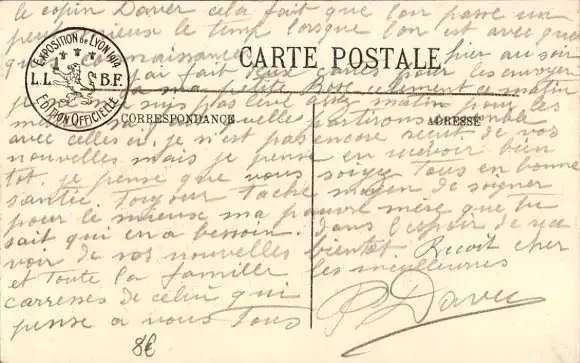 le copin Daver cela fait que l'on passe un
peu mieux le temp lorsque l'on est avec quel
naissance hier au soir
EXPOSITION de LYON 1914
L.L. B.F.
EDITION OFFICIELLE
CARTE POSTALE
j'ai fait deux cartes pour les envoyer
a ma petite Rose seulement ce matin
je suis pas levé assez matin pour les
CORRESPONDANCE
ADRESSE
nouvelle partirons ensemble
avec celles ci. je n'est pas encore recut de vos
nouvelles mais je pense en recevoir bien
tot. je pense que vous soiyez tous en bonne
santée. Toujour tache moyen de soigner
pour le mieuse ma pauvre mère que tu
sait qui en a besoin. dans l'espoir de rece
voir de vos nouvelles bientot Recoit cher
et toute la famille les meilleures
carresses de celiu qui
pense a vous tous P. Daver
8€